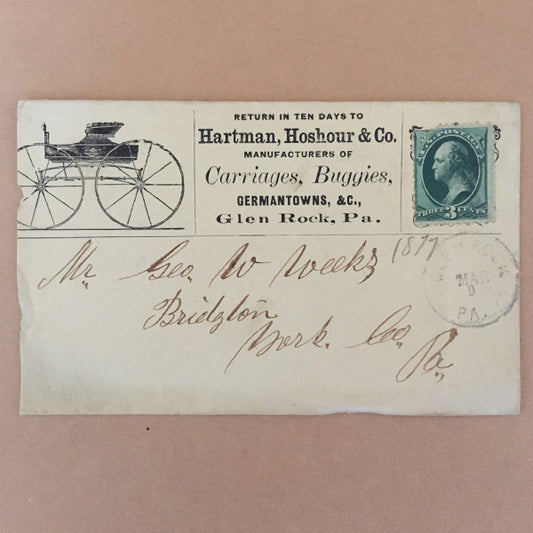 RETURN IN TEN DAYS TO
Hartman, Hoshour & Co.
MANUFACTURERS OF
Carriages, Buggies,
GERMANTOWNS, &C.,
Glen Rock, Pa.
U.S. POSTAGE
THREE 3 CENTS
1877
GLEN ROCK
MAR
9
PA.
Mr Geo. W Weeks
Bridgton
York. Co.
Pa